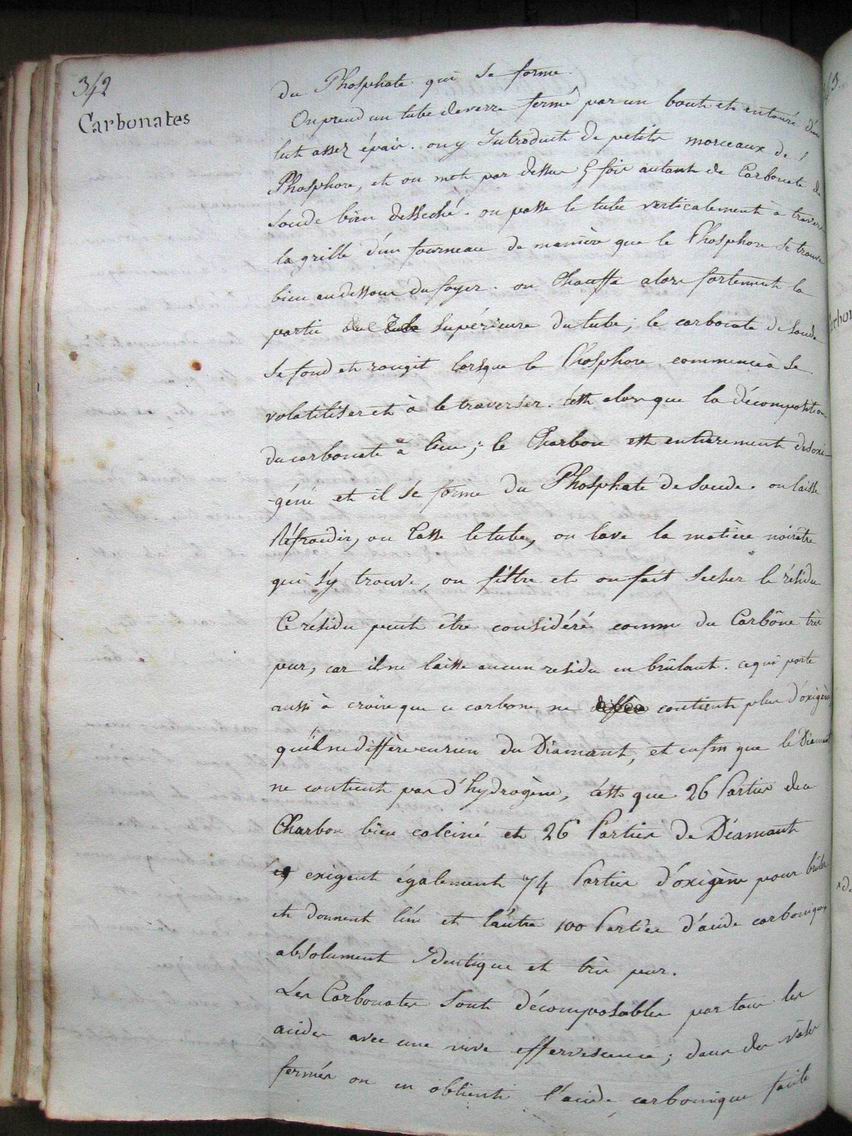 342
Carbonates
du Phosphate qui se forme.
On prend un tube de verre fermé par un bout et entouré d'un
lut assez épais. on y Introduit de petits morceaux de
Phosphore, et on met par dessus 5 fois autant de Carbonate de
Soude bien desséché. on passe le tube verticalement à travers
la grille d'un fourneau de manière que le Phosphore se trouve
bien au dessous du foyer. on Chauffe alors fortement la
partie Supérieure du tube; le carbonate de Soude
se fond et rougit lorsque le Phosphore commence à se
volatiliser et à le traverser. C'est alors que la décomposition
du carbonate a lieu; le Charbon est entièrement désoxi-
géné et il se forme du Phosphate de Soude. on laisse
Réfroidir, on Casse le tube, on lave la matière noirâtre
qui s'y trouve, on filtre et on fait secher le résidu
Ce résidu peut être considéré comme du Carbône très
pur, car il ne laisse aucun residu en brûlant. ce qui porte
aussi à croire que ce carbone ne contient plus d'oxigène
qu'il ne diffère en rien du Diamant, et enfin que le Diamant
ne contient pas d'hydrogène, c'est que 26 Parties de
Charbon bien calciné et 26 Parties de Diamant
exigent également 74 Parties d'oxigène pour brûler
et donnent l'un et l'autre 100 Parties d'acide carbonique
absolument Identique et très pur.
Les Carbonates Sont décomposables par tous les
acides avec une vive effervescence; dans des vases
fermés on en obtient l'acide carbonique facile